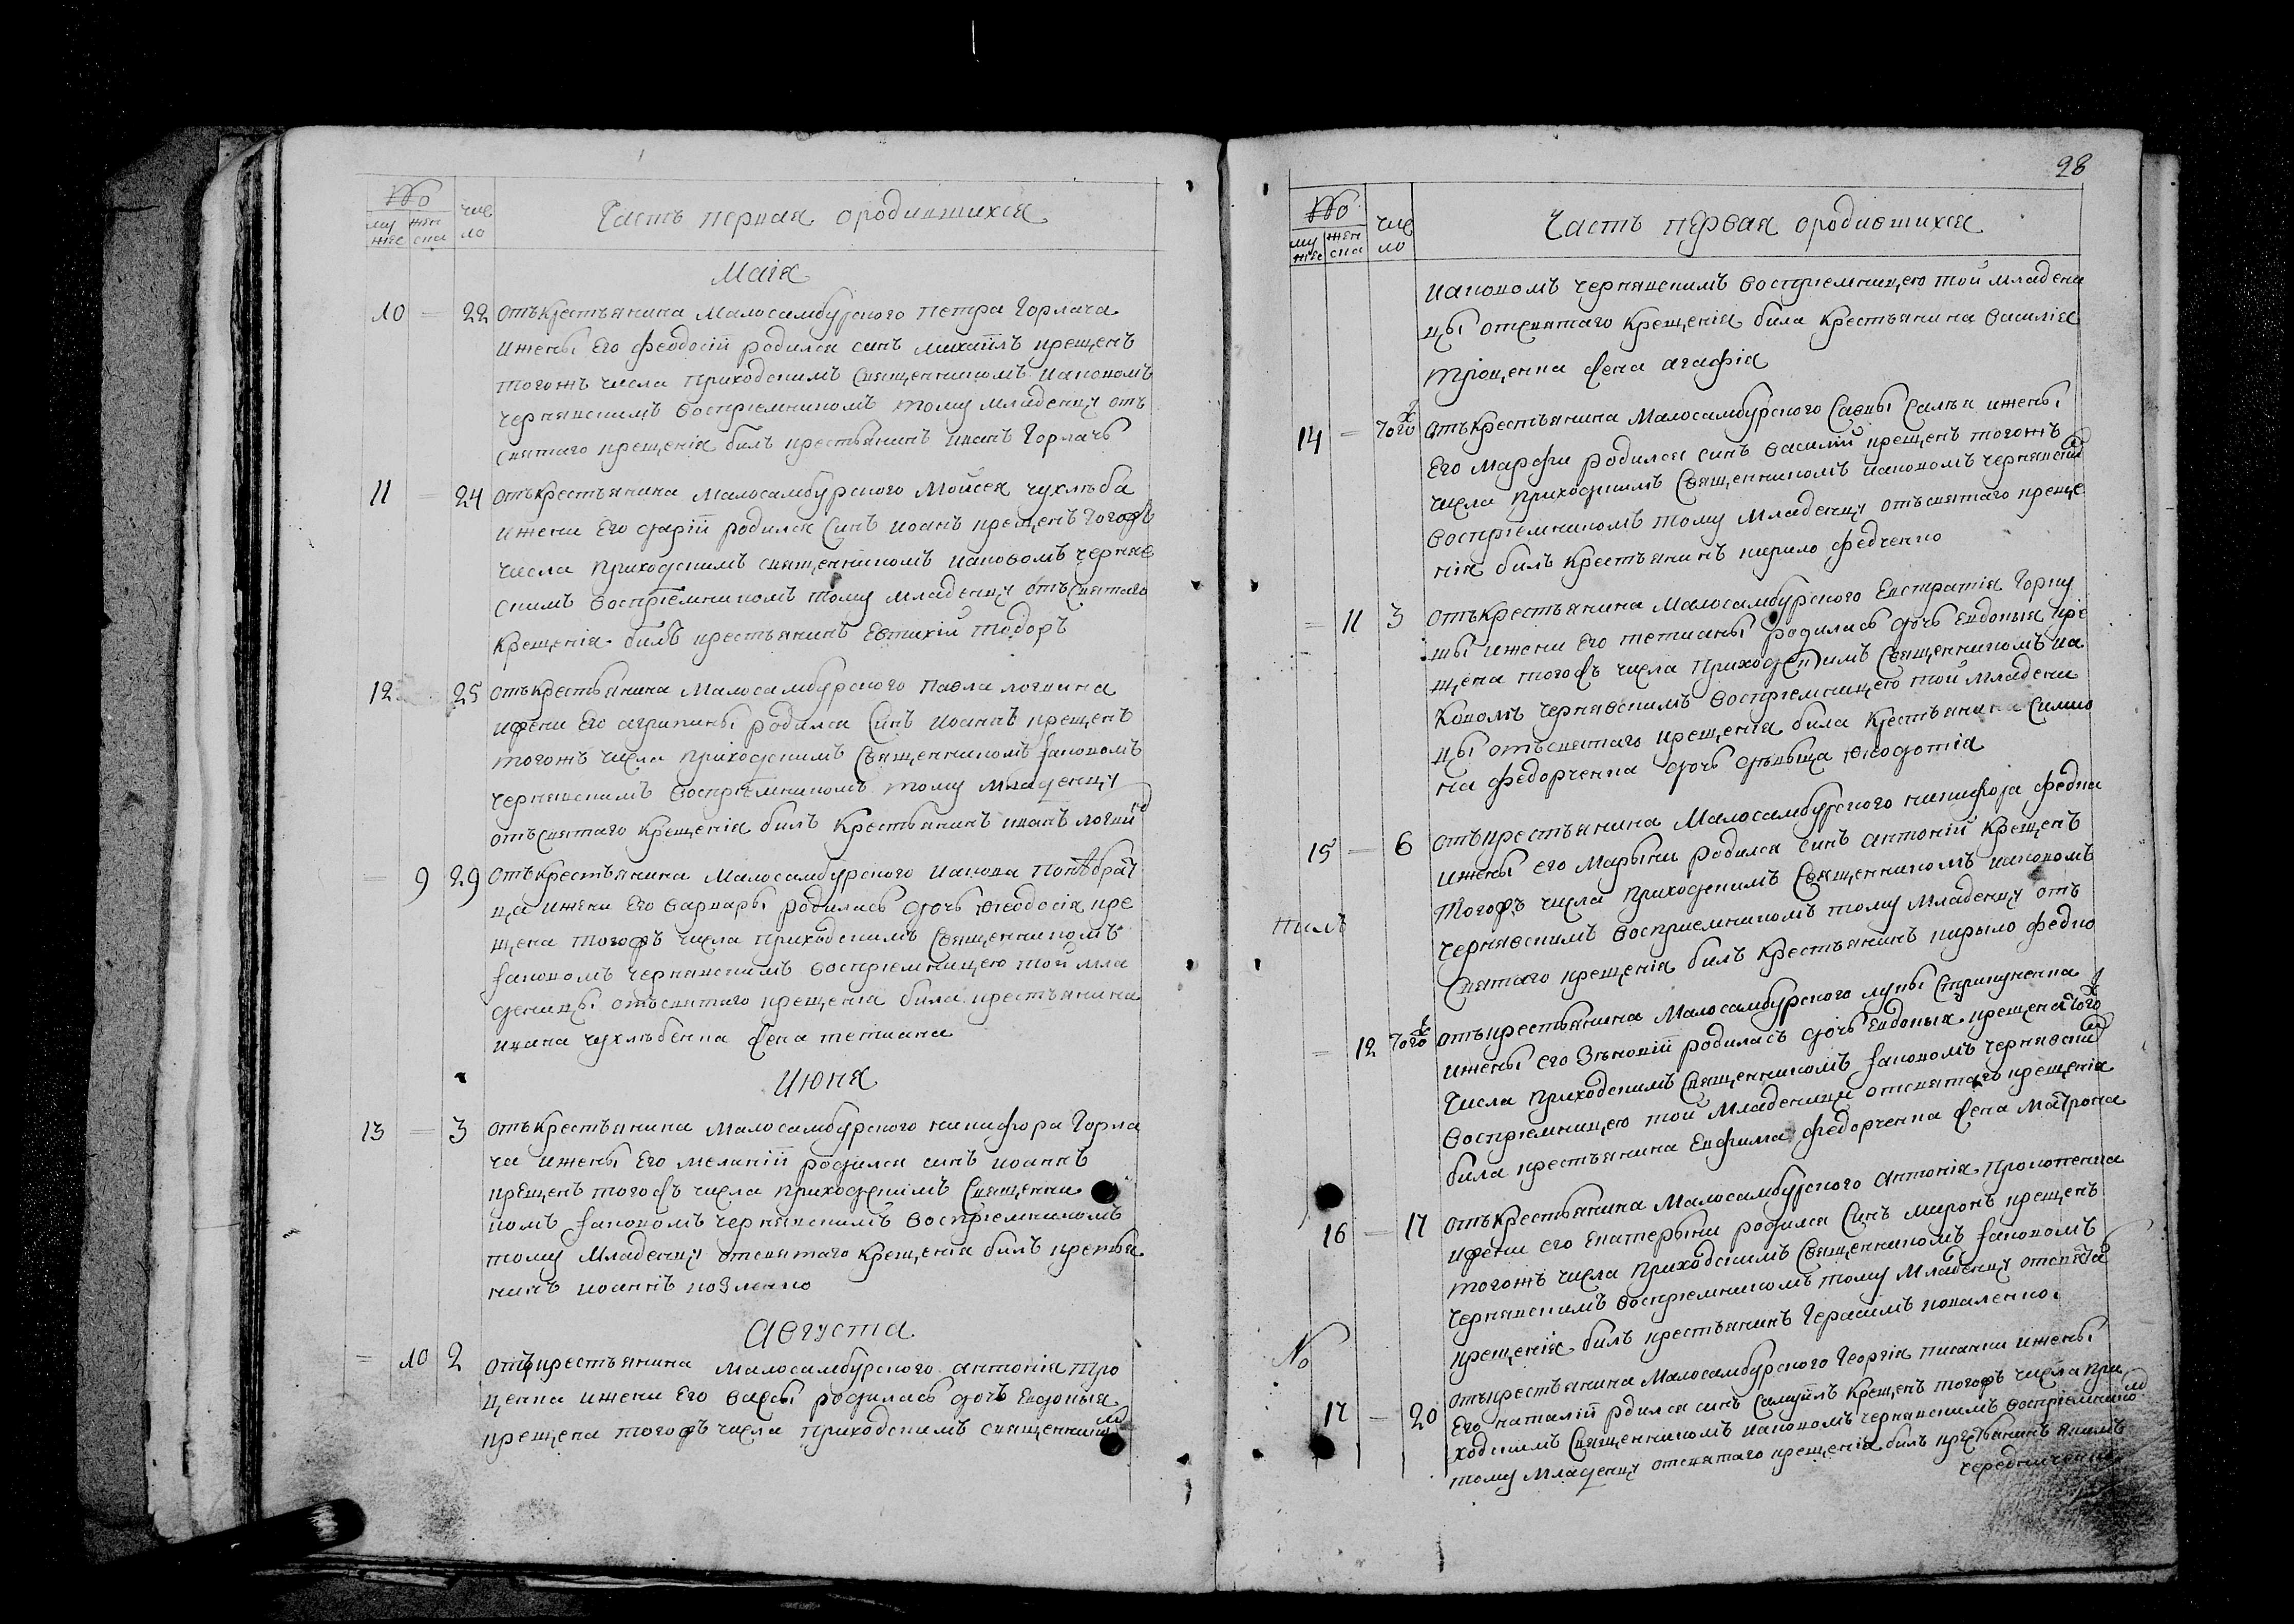 №
му
жес
жен
ска
чис
ло
Часть первая ородившихся
Маія
10 = 22 отъкрестьянина Малосамбурского Петра Горлача
ижены Его Феодосіи родился синъ михаилъ крещенъ
тогожъ числа приходскимъ священникомъ иаковомъ
чернявскимъ воспріемникомъ тому младенцу отъ
святаго крещенія билъ крестьянинъ иванъ Горлачъ
11 = 24 отъкрестьянина Малосамбурского Мойсея чухлѣба
ижени Его дарій родился Синъ иоанъ крещенъ тогожъ
числа приходскимъ священникомъ иаковомъ черняв
скимъ воспріемникомъ тому младенцу отъсвятаго
Крещенія билъ крестьянинъ Евтихій тодоръ
12 25 отъкрестьянина Малосамбурского Павла логвина
ижени Его агрипины родился Синъ иоаннъ крещенъ
тогожъ числа приходскимъ Священникомъ Іаковомъ
чернявскимъ воспріемникомъ тому младенцу
отъсвятаго крещенія билъ крестьянинъ иванъ логвин
= 9 29 отъкрестьянина Малосамбурского иакова
ца ижени Его варвары родилась дочь Феодосія кре
щена тогожъ числа приходскимъ Священникомъ
Іаковомъ чернявскимъ воспріемницею той мла
деници отъсвятаго крещенія била крестьянина
ивана чухлѣбенка жена тетиана
Июня
13 = 3 отъкрестьянина Малосамбурского никифора Горла
ча ижены Его меланіи родился синъ иоаннъ
крещенъ тогожъ числа приходскимъ Священни
комъ Іаковомъ чернявскимъ воспріемникомъ
тому младенцу отсвятаго Крещенія билъ крестья
нинъ иоаннъ козленко
Августа
= 10 2 отъкрестьянина Малосамбурского антонія Тро
ценка ижени Его васы родилась дочь Евдокия
крещена тогожъ числа приходскимъ священником
28
№
му
жес
жен
ска
чис
ло
Часть первая ородившихся
иаковомъ чернявскимъ воспріемницею той младени
цы отсвятаго Крещенія била Крестьянина василія
троценка жена агафія
14 = тогож отъкрестьянина Малосамбурского Савы ижены
Его Марфи родился синъ василій крещенъ тогожъ
числа приходскимъ Священникомъ иаковомъ чернявским
воспріемникомъ тому младенцу отъсвятаго креще
нія билъ крестьянинъ кирило федченко
= 11 3 отъкрестьянина Малосамбурского Евстратія Горку
шы ижени Его тетианы родилась дочь Евдокия кре
щена тогожъ числа приходскимъ Священникомъ иа
ковомъ чернявскимъ воспріемницею той младени
цы отъсвятаго крещенія била крестьянина Симио
на федорченка дочь дѣвыца Феодотія
15 = 6 отъкрестьянина Малосамбурского никифора федка
ижены его Марыни родился синъ антоній крещенъ
тогожъ числа приходскимъ Священникомъ иаковомъ
чернявскимъ воспріемникомъ тому младенцу отъ
святаго крещенія билъ крестьянинъ кирыло федко
= 12 тогож отъкрестьянина Малосамбурского лукы Стрикуненка
ижены его Зѣновіи родилась дочь Евдокыя крещена тогож
числа приходскимъ Священникомъ Іаковомъ чернявским
воспріемницею той младеници отсвятаго крещенія
била крестьянина Евфима федорченка жена Матрона
16 = 17 отъкрестьянина Малосамбурского антонія Прокопенка
ижени его Екатерыни родился Синъ миронъ крещенъ
тогожъ числа приходскимъ Священникомъ Іаковомъ
чернявскимъ воспріемникомъ тому младенцу отсвята
крещенія билъ крестьянинъ Герасимъ коваленко
№
17 = 20 отъкрестьянина Малосамбурского Георгія писанки ижены
Его наталіи рдился синъ Самуилъ крещенъ тогожъ числа при
ходскимъ Священникомъ иаковомъ чернявскимъ воспріемником
тому младенцу отсвятаго крещенія билъ крестьянинъ якимъ